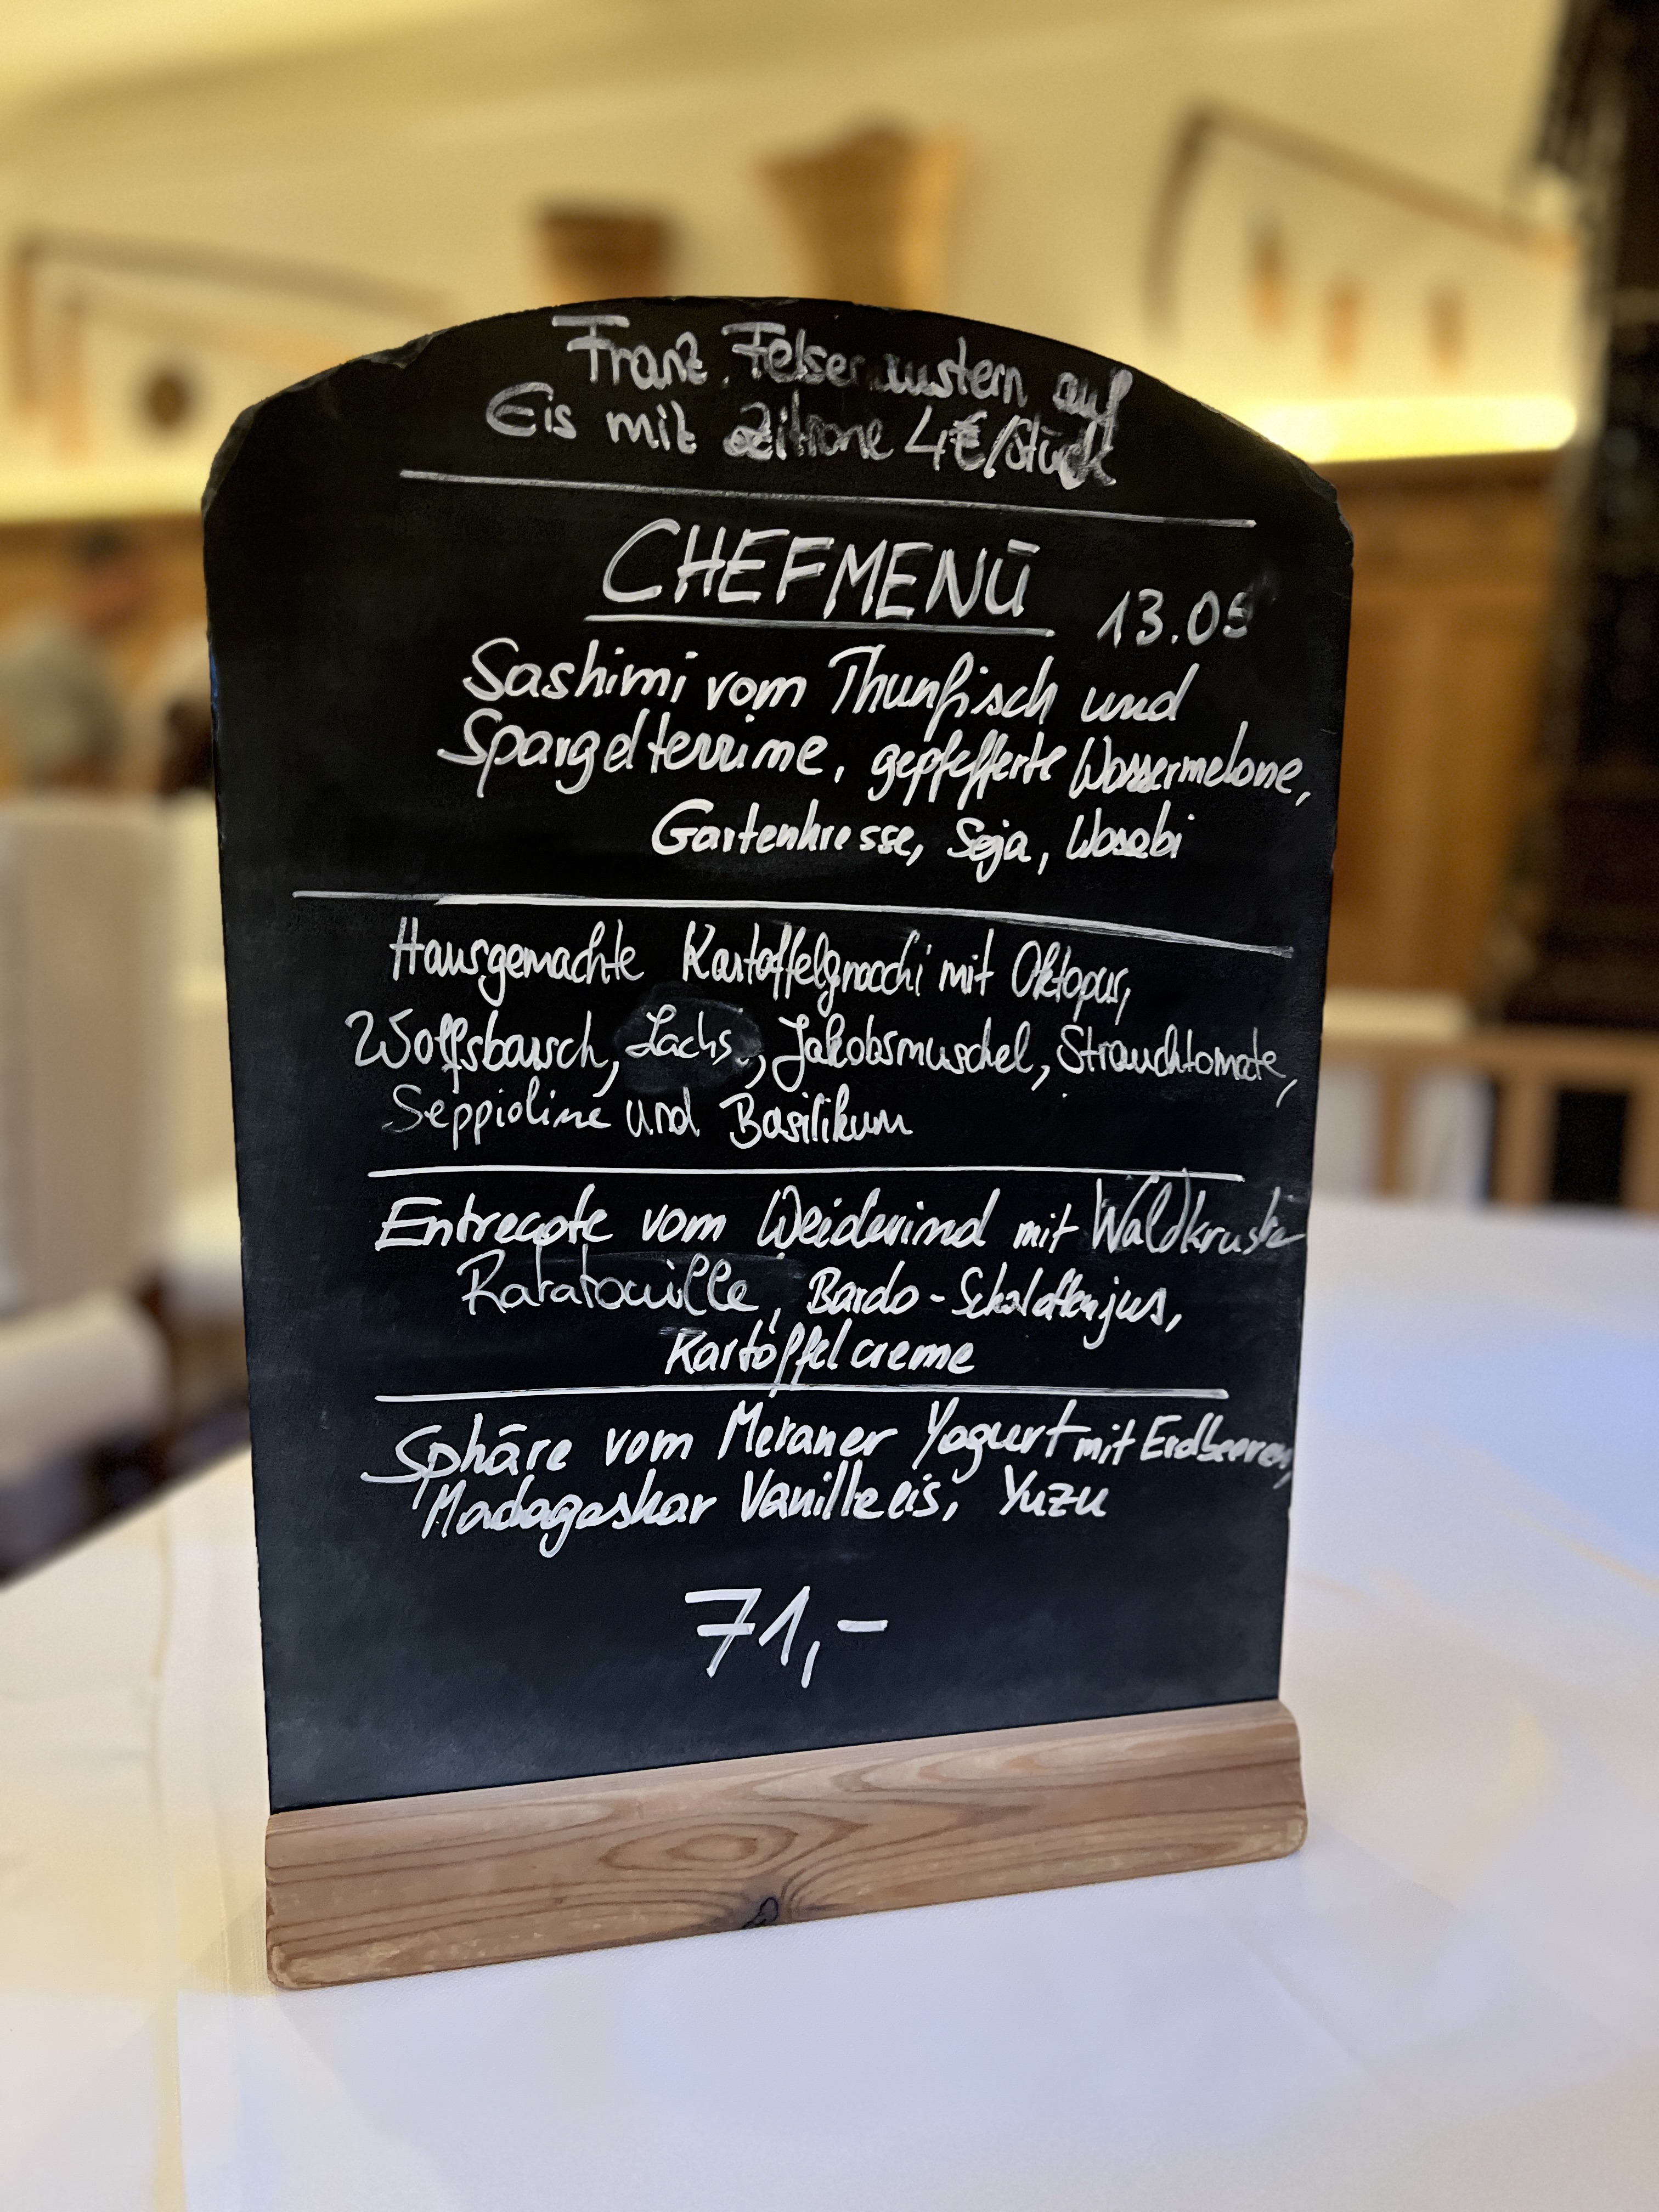 Franz. Felsenaustern auf
Eis mit Zitrone 4€/Stück
CHEFMENÜ
13.05
Sashimi vom Thunfisch und
Spargelterrine, gepfefferte Wassermelone,
Gartenkresse, Soja, Wasabi
Hausgemachte Kartoffelgnocchi mit Oktopus,
Wolfsbarsch, Lachs, Jakobsmuschel, Strauchtomate,
Seppioline und Basilikum
Entrecote vom Weiderind mit Waldkruste
Ratatouille, Bardo-Schalottenjus,
Kartoffelcreme
Sphäre vom Meraner Yogurt mit Erdbeeren,
Madagaskar Vanilleeis, Yuzu
71,-